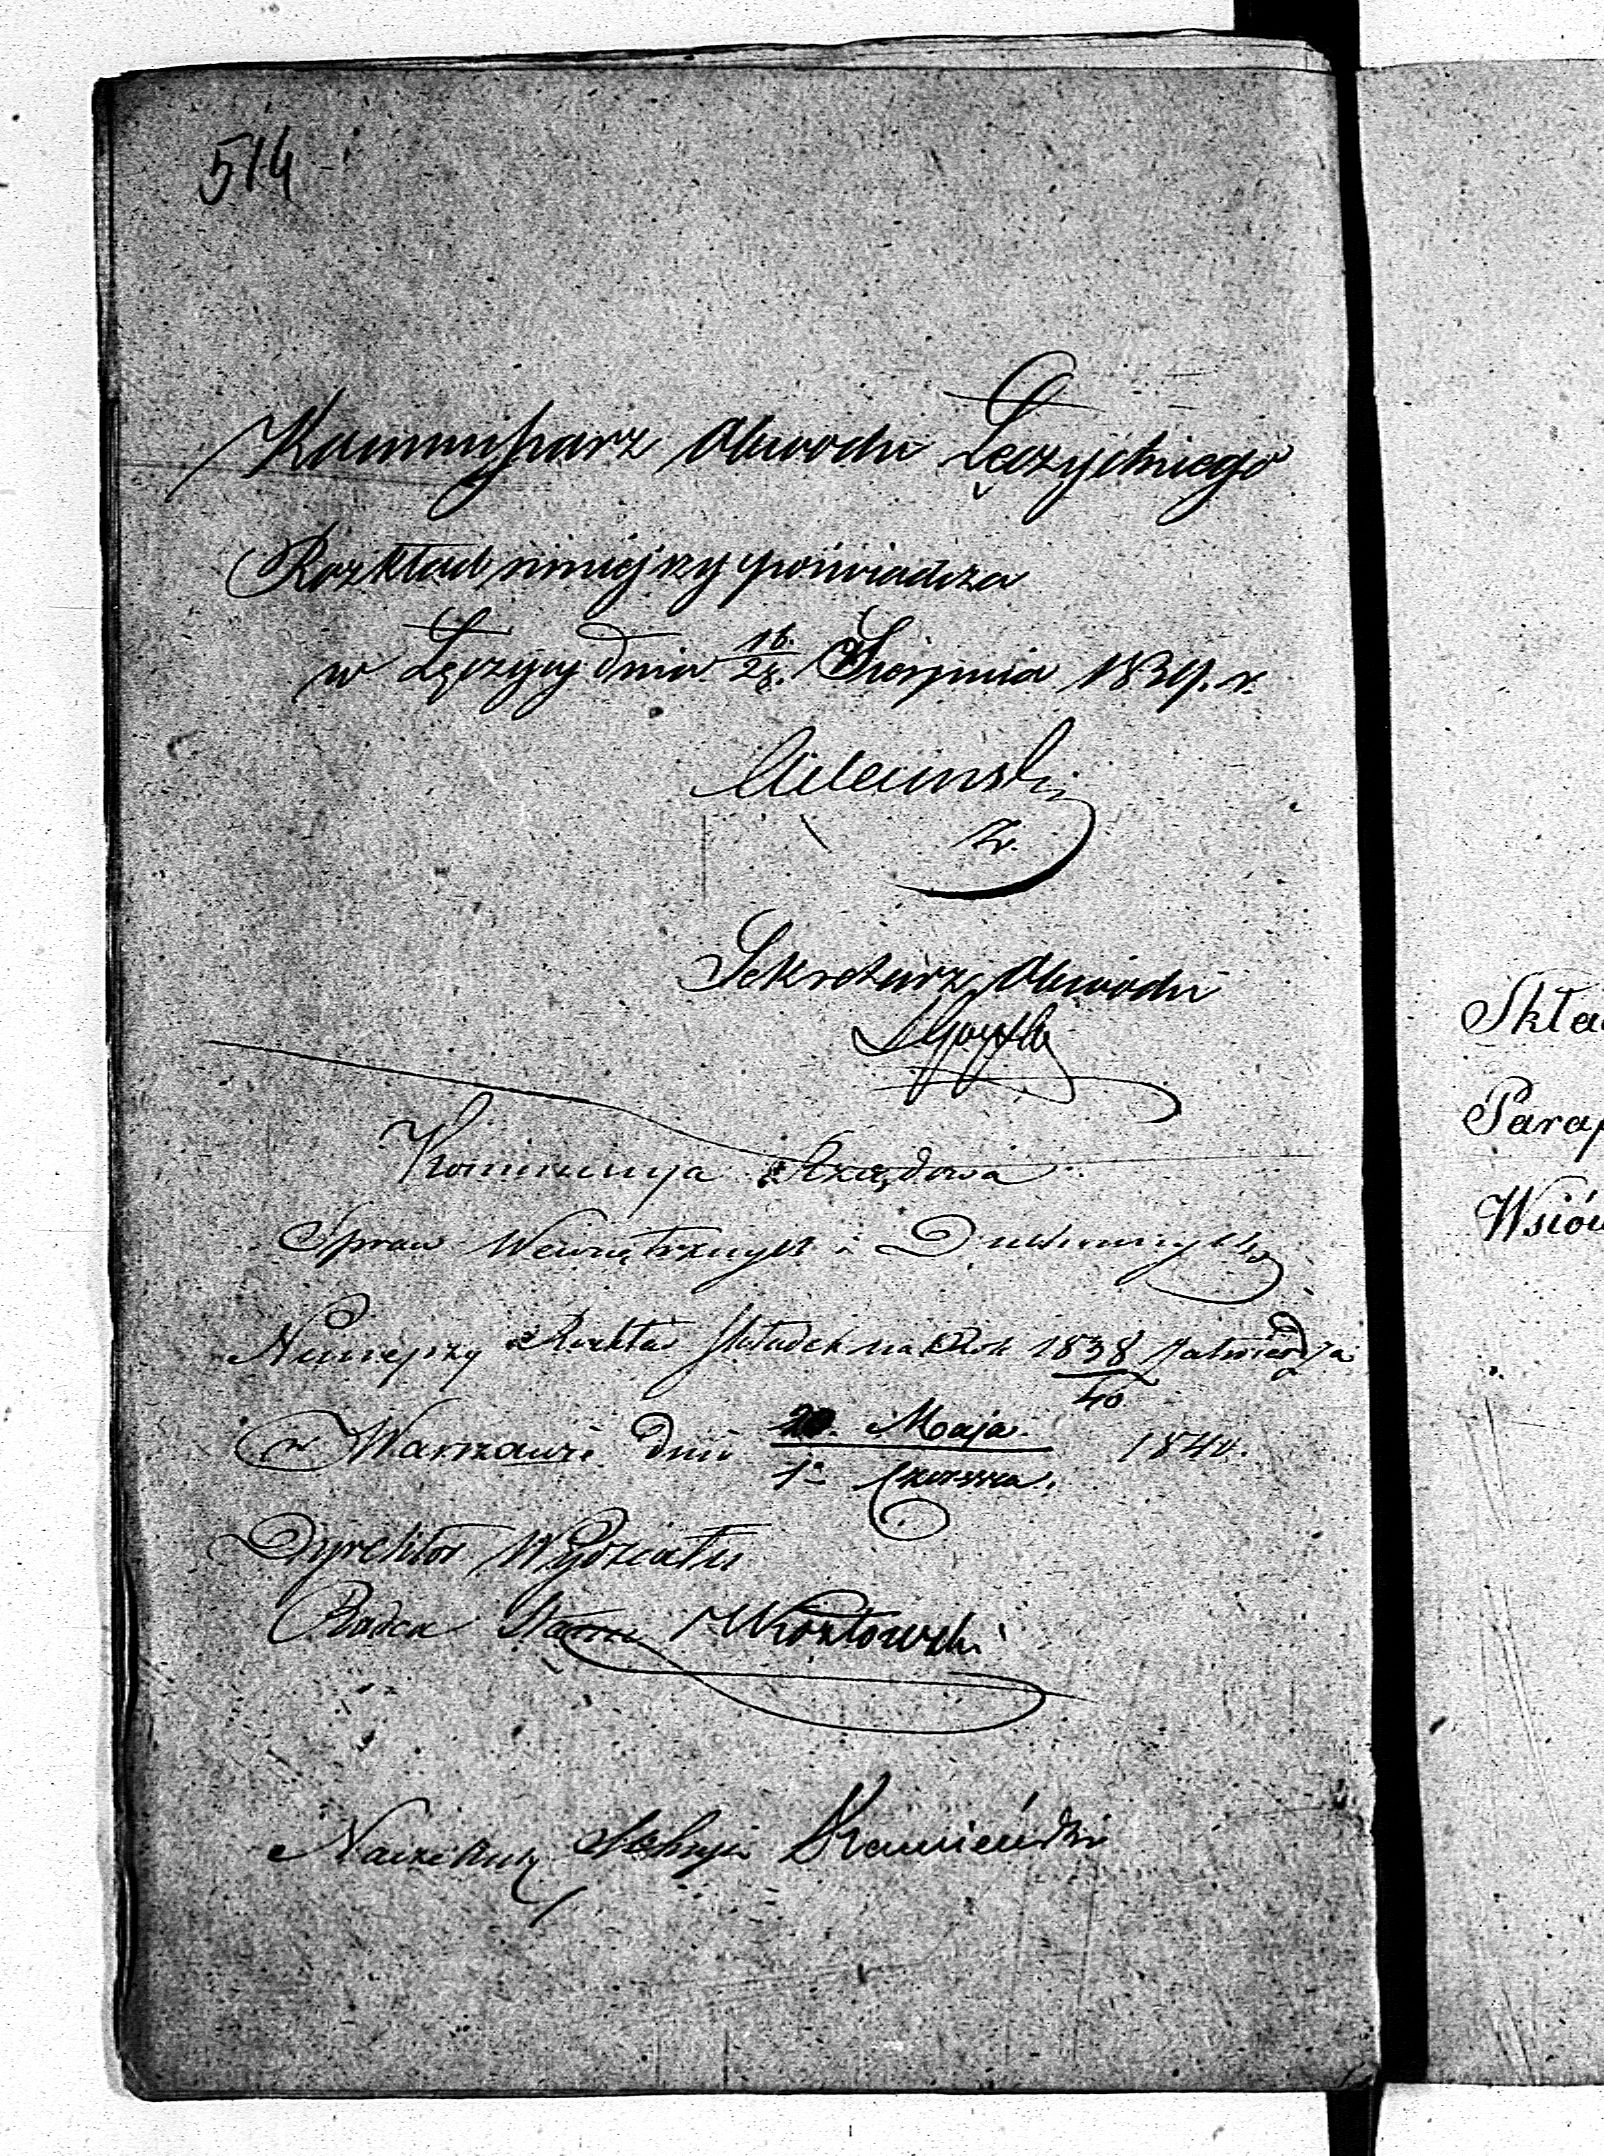 514
Kommissarz Obwodu Łęczyckiego
Rozkład niniejszy poświadcza
w Łęczycy dnia 16/28. Sierpnia 1839. r.
Z.
Sekretarz Obwodu
Kommissya Rządowa
Spraw Wewnętrznych i Duchownych
Niniejszy Rozkład składek na Rok 1838/40 zatwierdza
w Warszawie dnia 20. Maja / 1 Czerwca 1840.
Dyrektor Wydziału
Radca Stanu Kozłowski
Naczelnik Sekcyi Kamieński
Skła
Para
Wsiów